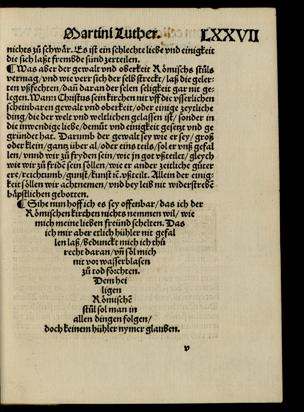 Martini Luther. LXXVII
nichts zů schwår. Es ist ein schlechte liebe vnd einigkeit
die sich laßt frembde sünd zerteilen.
¶ Was aber der gewalt vnd oberkeit Römischs stůls
vermag / vnd wie verr sich der selb streckt / laß die geler-
ten vßfechten / dañ daran der selen seligkeit gar nit ge-
legen. Wann Christus sein kirchen nit vff die vsserlichen
scheinbaren gewalt vnd oberkeit / oder einige zeytliche
ding / die der welt vnd weltlichen gelassen ist / sonder in
die inwendige liebe / demůt vnd einigkeit gesetzt vnd ge
gründet hat. Darumb der gewalt sey wie er sey / groß
oder klein / gantz über al / oder eins teils / sol er vnß gefal
len / vnnd wir zů fryden sein / wie jn got vßteilt / gleych
wie wir zů fridē sein söllen / wie er ander zeitliche gůter
ere / reichtumb / gunst / kunst ꝛc. vßteilt. Allein der einig-
keit söllen wir achtnemen / vnd bey leib nit widerstrebē
båpstlichen gebotten.
¶ Sihe nun hoff ich es sey offenbar / das ich der
Römischen kirchen nichts nemmen wil / wie
mich meine lieben freünd schelten. Das
ich mir aber etlich hühler nit gefal
len laß / bedunckt mich ich thů
recht daran / vñ söl mich
nit vor wasserblasen
zů tod föchten.
Dem hei
ligen
Römischē
stůl sol man in
allen dingen folgen /
doch keinem hühler nymer glauben.
v